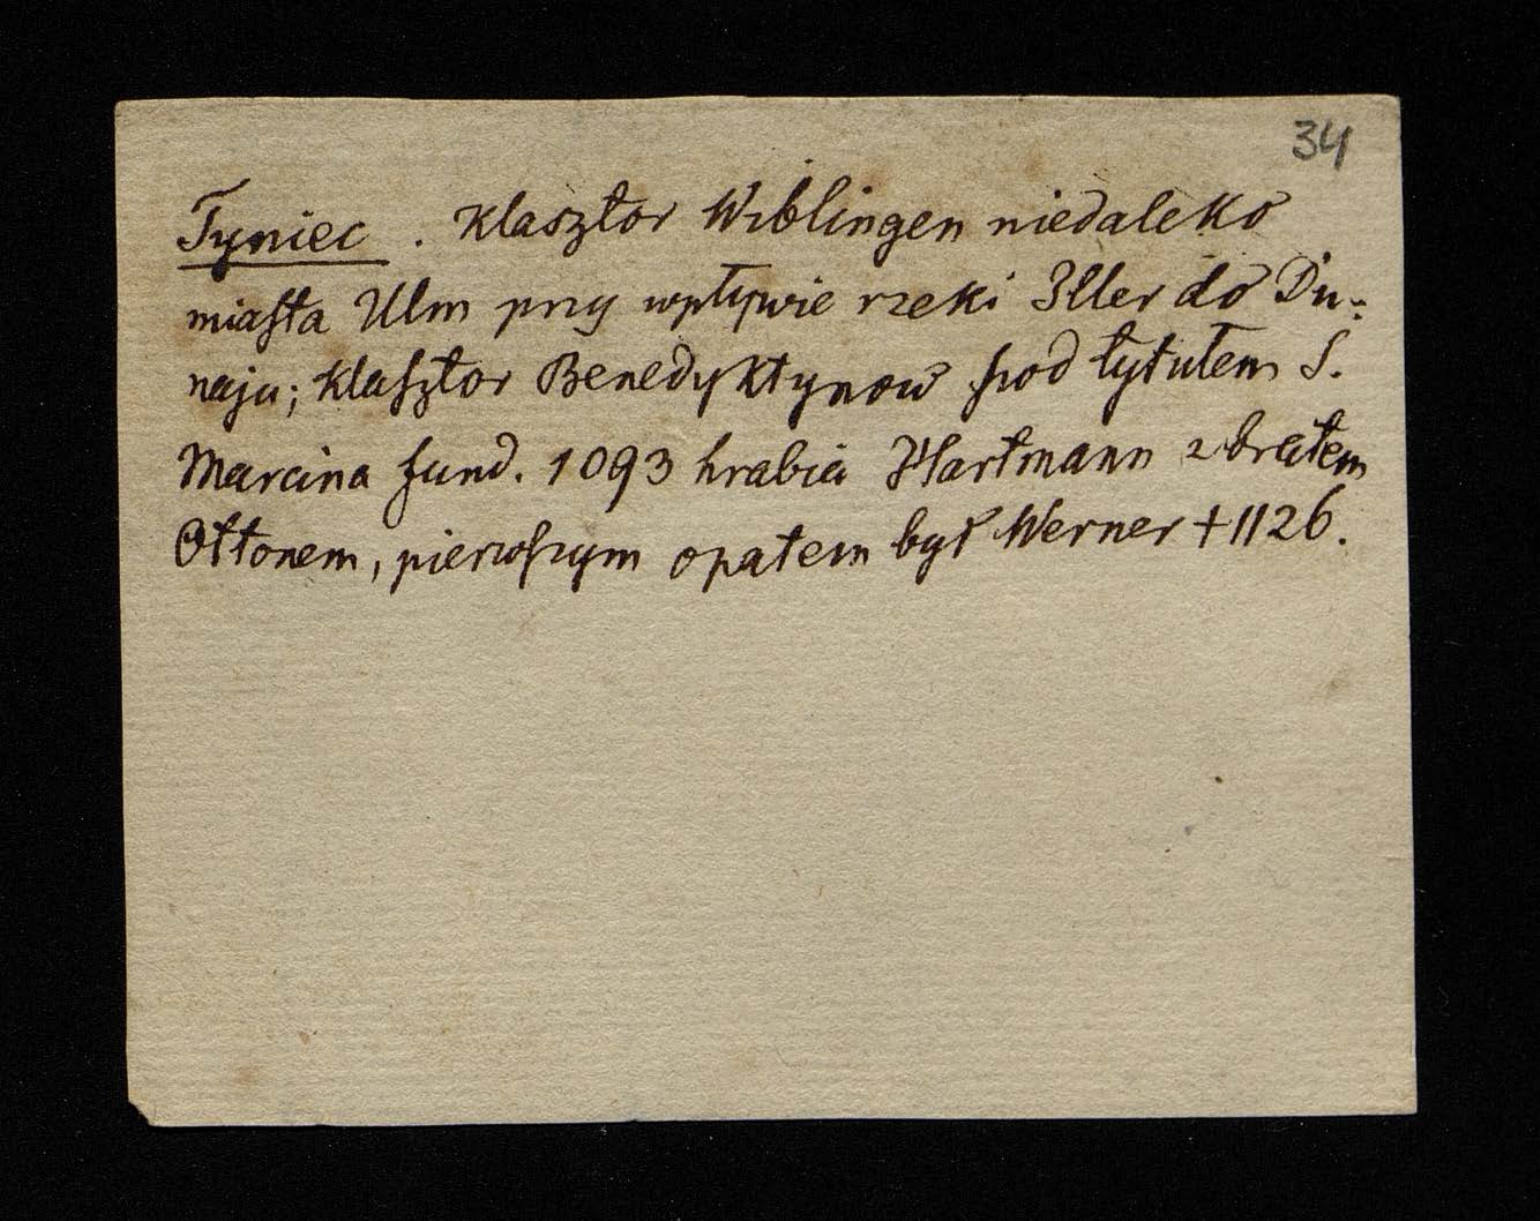 34
Tyniec. Klasztor Wiblingen niedaleko
miasta Ulm przy wpływie rzeki Iller do Du-
naju; klasztor Benedyktynow pod tytułem S.
Marcina fund. 1093 hrabia Hartmann z bratem
Ottonem, pierwszym opatem był Werner +1126.